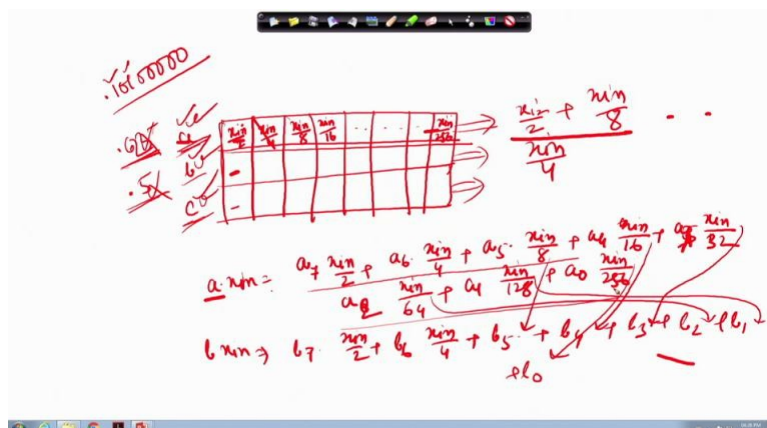 .10100000
.62x a xin/2 xin/4 xin/8 xin/16 .... xin/256
.5x b
c
xin/2 + xin/8 . .
xin/4
a·xin = a7 xin/2 + a6· xin/4 + a5· xin/8 + a4 xin/16 + a3 xin/32
a2 xin/64 + a1 xin/128 + a0 xin/256
b xin ⇒ b7· xin/2 + b6 xin/4 + b5· + b4 + b3 + b2 + b1
+b0